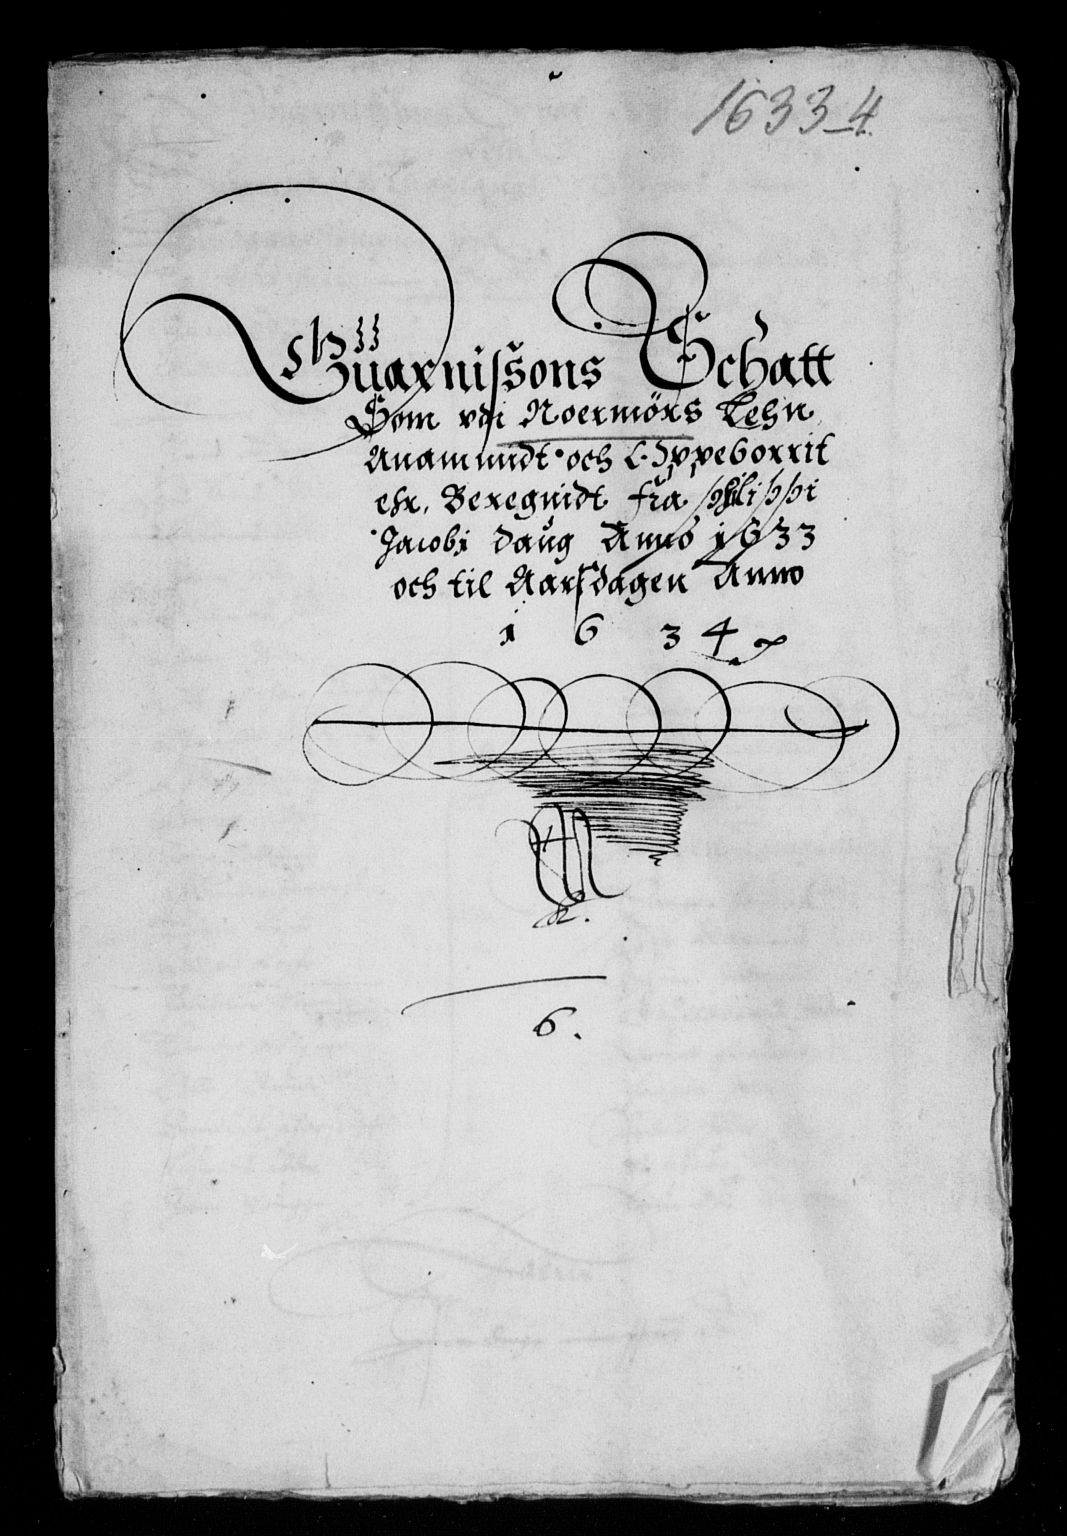 1633_4.
Guarnisons Schatt
Som vdi Noermörs Lehn
Anammidt och Oppeborrit
ehr, Beregnidt fra Philippi
Jacobi Daug Anno 1633
och til Aarsdagen Anno
1634
6.